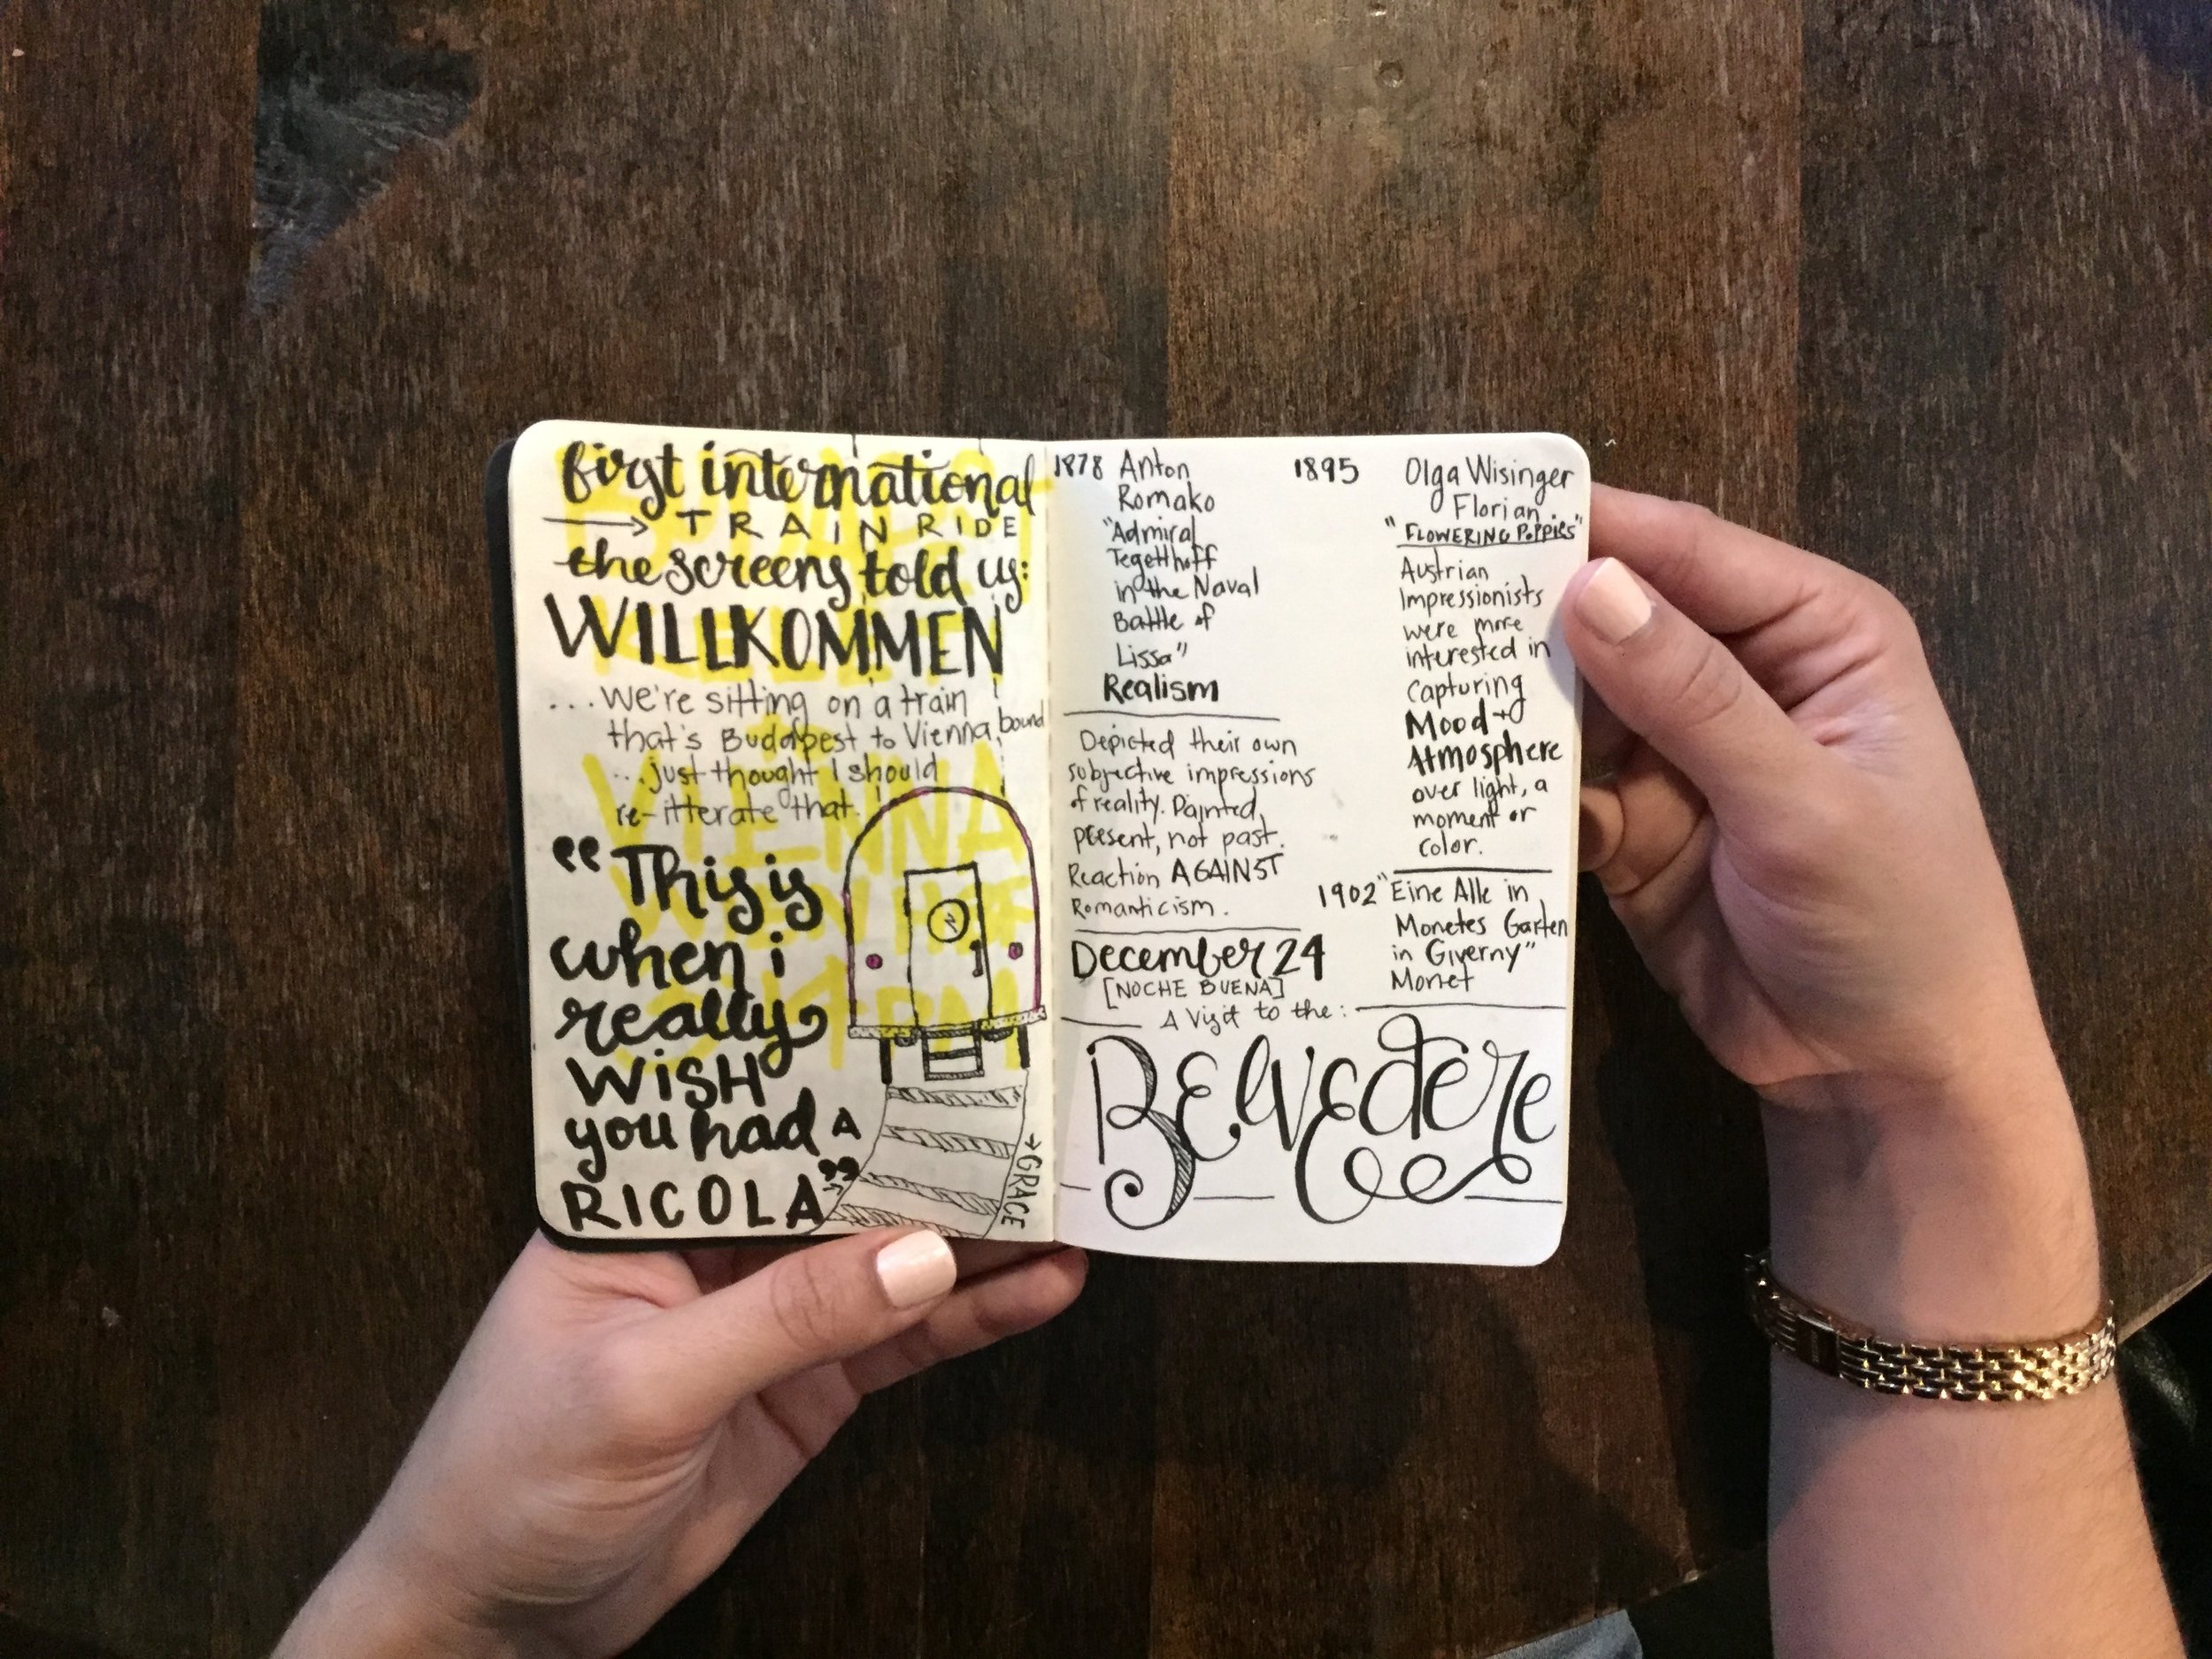 first international
TRAIN RIDE
the screens told us:
WILLKOMMEN
...we're sitting on a train
that's Budapest to Vienna bound
...just thought I should
re-itterate that.
"This is
when i
really
WISH
you had A
RICOLA"
→GRACE
VIENNA
1878 Anton
Romako
"Admiral
Tegetthoff
in the Naval
Battle of
Lissa"
Realism
Depicted their own
subjective impressions
of reality. Painted
present, not past.
Reaction AGAINST
Romanticism.
1895 Olga Wisinger
Florian
"FLOWERING POPPIES"
Austrian
Impressionists
were more
interested in
capturing
Mood +
Atmosphere
over light, a
moment or
color.
1902 "Eine Alle in
Monetes Garten
in Giverny"
Monet
December 24
[NOCHE BUENA]
A Visit to the:
BElvEdere